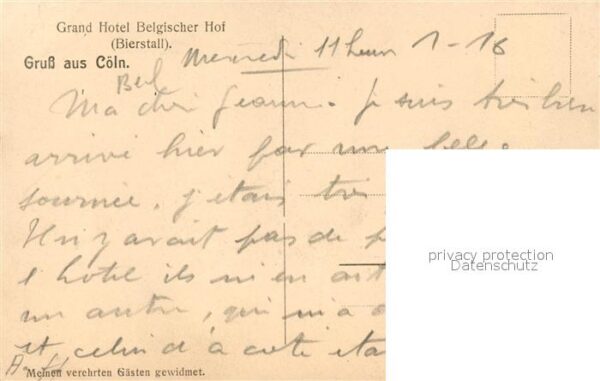 Grand Hotel Belgischer Hof
(Bierstall).
Gruß aus Cöln.
Mercredi 11 heures 1-16
Ma chère Jeanne. Je suis très bien
arrivé hier par une belle
journée. j'étais très
Il n'y avait pas de
l'hôtel ils m'en ont
un autre, qui m'a
et celui d'à côté
Meinen verehrten Gästen gewidmet.
privacy protection
Datenschutz